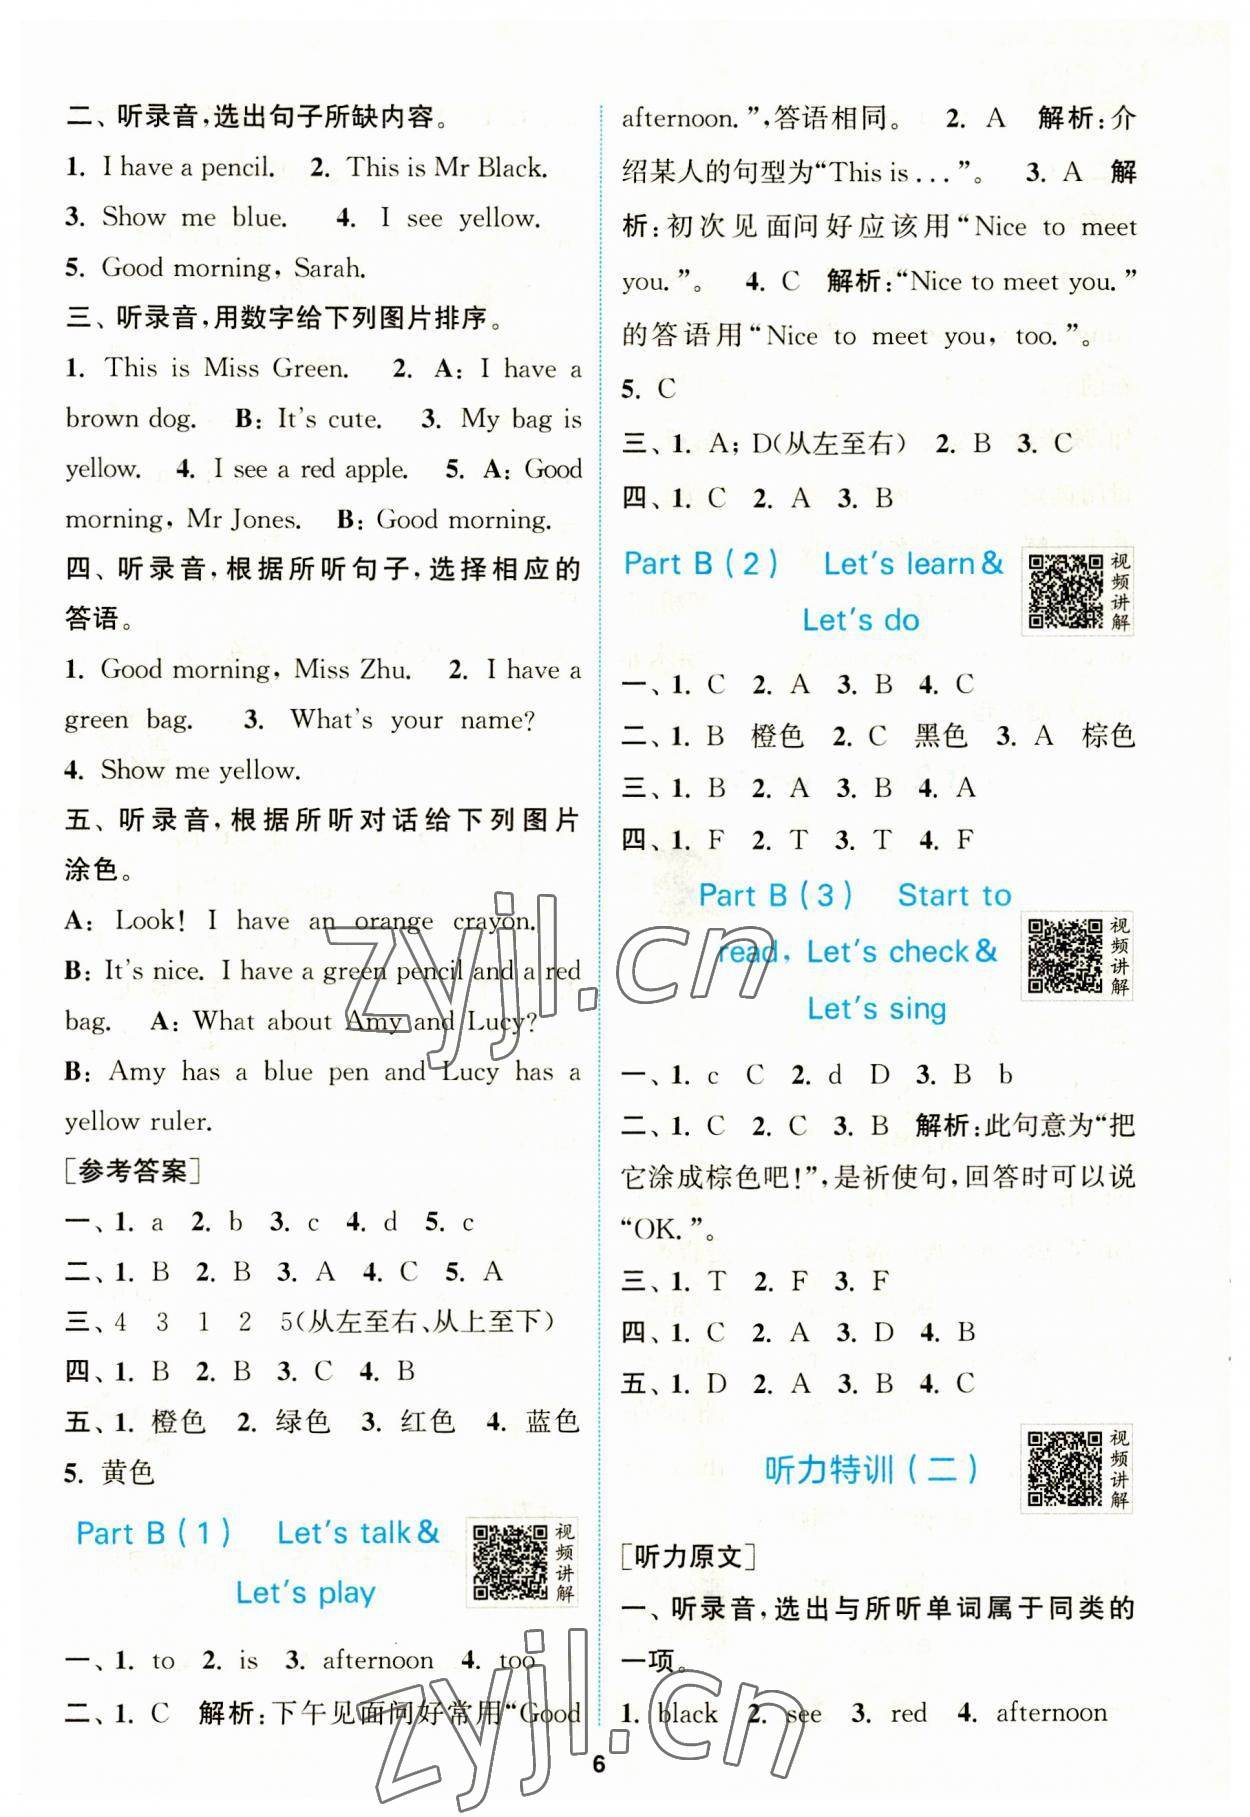 二、听录音,选出句子所缺内容。
1. I have a pencil. 2. This is Mr Black.
3. Show me blue. 4. I see yellow.
5. Good morning, Sarah.
三、听录音,用数字给下列图片排序。
1. This is Miss Green. 2. A: I have a
brown dog. B: It's cute. 3. My bag is
yellow. 4. I see a red apple. 5. A: Good
morning, Mr Jones. B: Good morning.
四、听录音,根据所听句子,选择相应的
答语。
1. Good morning, Miss Zhu. 2. I have a
green bag. 3. What's your name?
4. Show me yellow.
五、听录音,根据所听对话给下列图片
涂色。
A: Look! I have an orange crayon.
B: It's nice. I have a green pencil and a red
bag. A: What about Amy and Lucy?
B: Amy has a blue pen and Lucy has a
yellow ruler.
[参考答案]
一、1. a 2. b 3. c 4. d 5. c
二、1. B 2. B 3. A 4. C 5. A
三、4 3 1 2 5(从左至右、从上至下)
四、1. B 2. B 3. C 4. B
五、1. 橙色 2. 绿色 3. 红色 4. 蓝色
5. 黄色
Part B(1) Let's talk&
Let's play
视频讲解
一、1. to 2. is 3. afternoon 4. too
二、1. C 解析:下午见面问好常用“Good
afternoon.”,答语相同。 2. A 解析:介
绍某人的句型为“This is ...”。 3. A 解
析:初次见面问好应该用“Nice to meet
you.”。 4. C 解析:“Nice to meet you.”
的答语用“Nice to meet you, too.”。
5. C
三、1. A; D(从左至右) 2. B 3. C
四、1. C 2. A 3. B
Part B(2) Let's learn&
Let's do
视频讲解
一、1. C 2. A 3. B 4. C
二、1. B 橙色 2. C 黑色 3. A 棕色
三、1. B 2. A 3. B 4. A
四、1. F 2. T 3. T 4. F
Part B(3) Start to
read, Let's check&
Let's sing
视频讲解
一、1. c C 2. d D 3. B b
二、1. C 2. C 3. B 解析:此句意为“把
它涂成棕色吧!”,是祈使句,回答时可以说
“OK.”。
三、1. T 2. F 3. F
四、1. C 2. A 3. D 4. B
五、1. D 2. A 3. B 4. C
听力特训(二)
视频讲解
[听力原文]
一、听录音,选出与所听单词属于同类的
一项。
1. black 2. see 3. red 4. afternoon
6
zyjl.cn
zyjl.cn